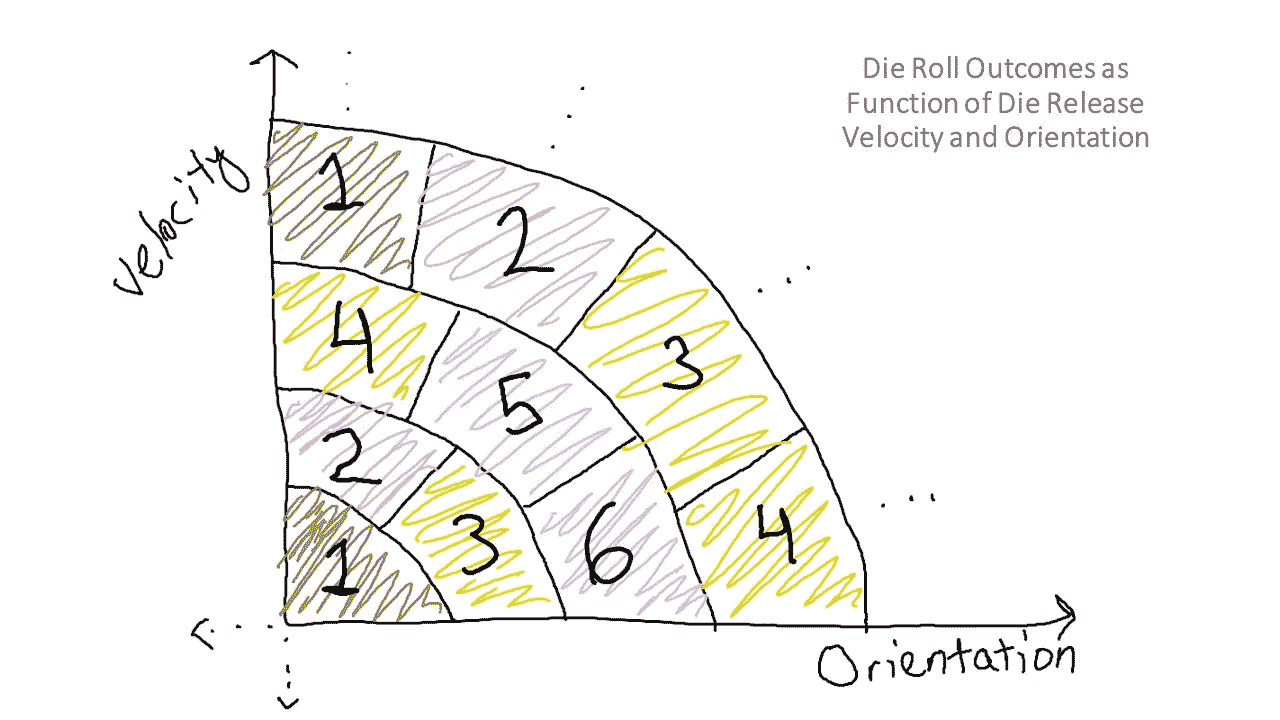 Die Roll Outcomes as
Function of Die Release
Velocity and Orientation
Velocity
1
2
3
4
4
5
6
2
3
1
Orientation